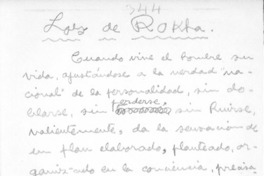 344
Los de Rokha.
Cuando vive el hombre su
vida, ajustándose a la verdad "na-
cional" de la personalidad, sin do-
blarse, sin perderse, sin huirse,
valientemente, da la sensación de
un plan elaborado, planteado, or-
ganizado en la conciencia, precisa-